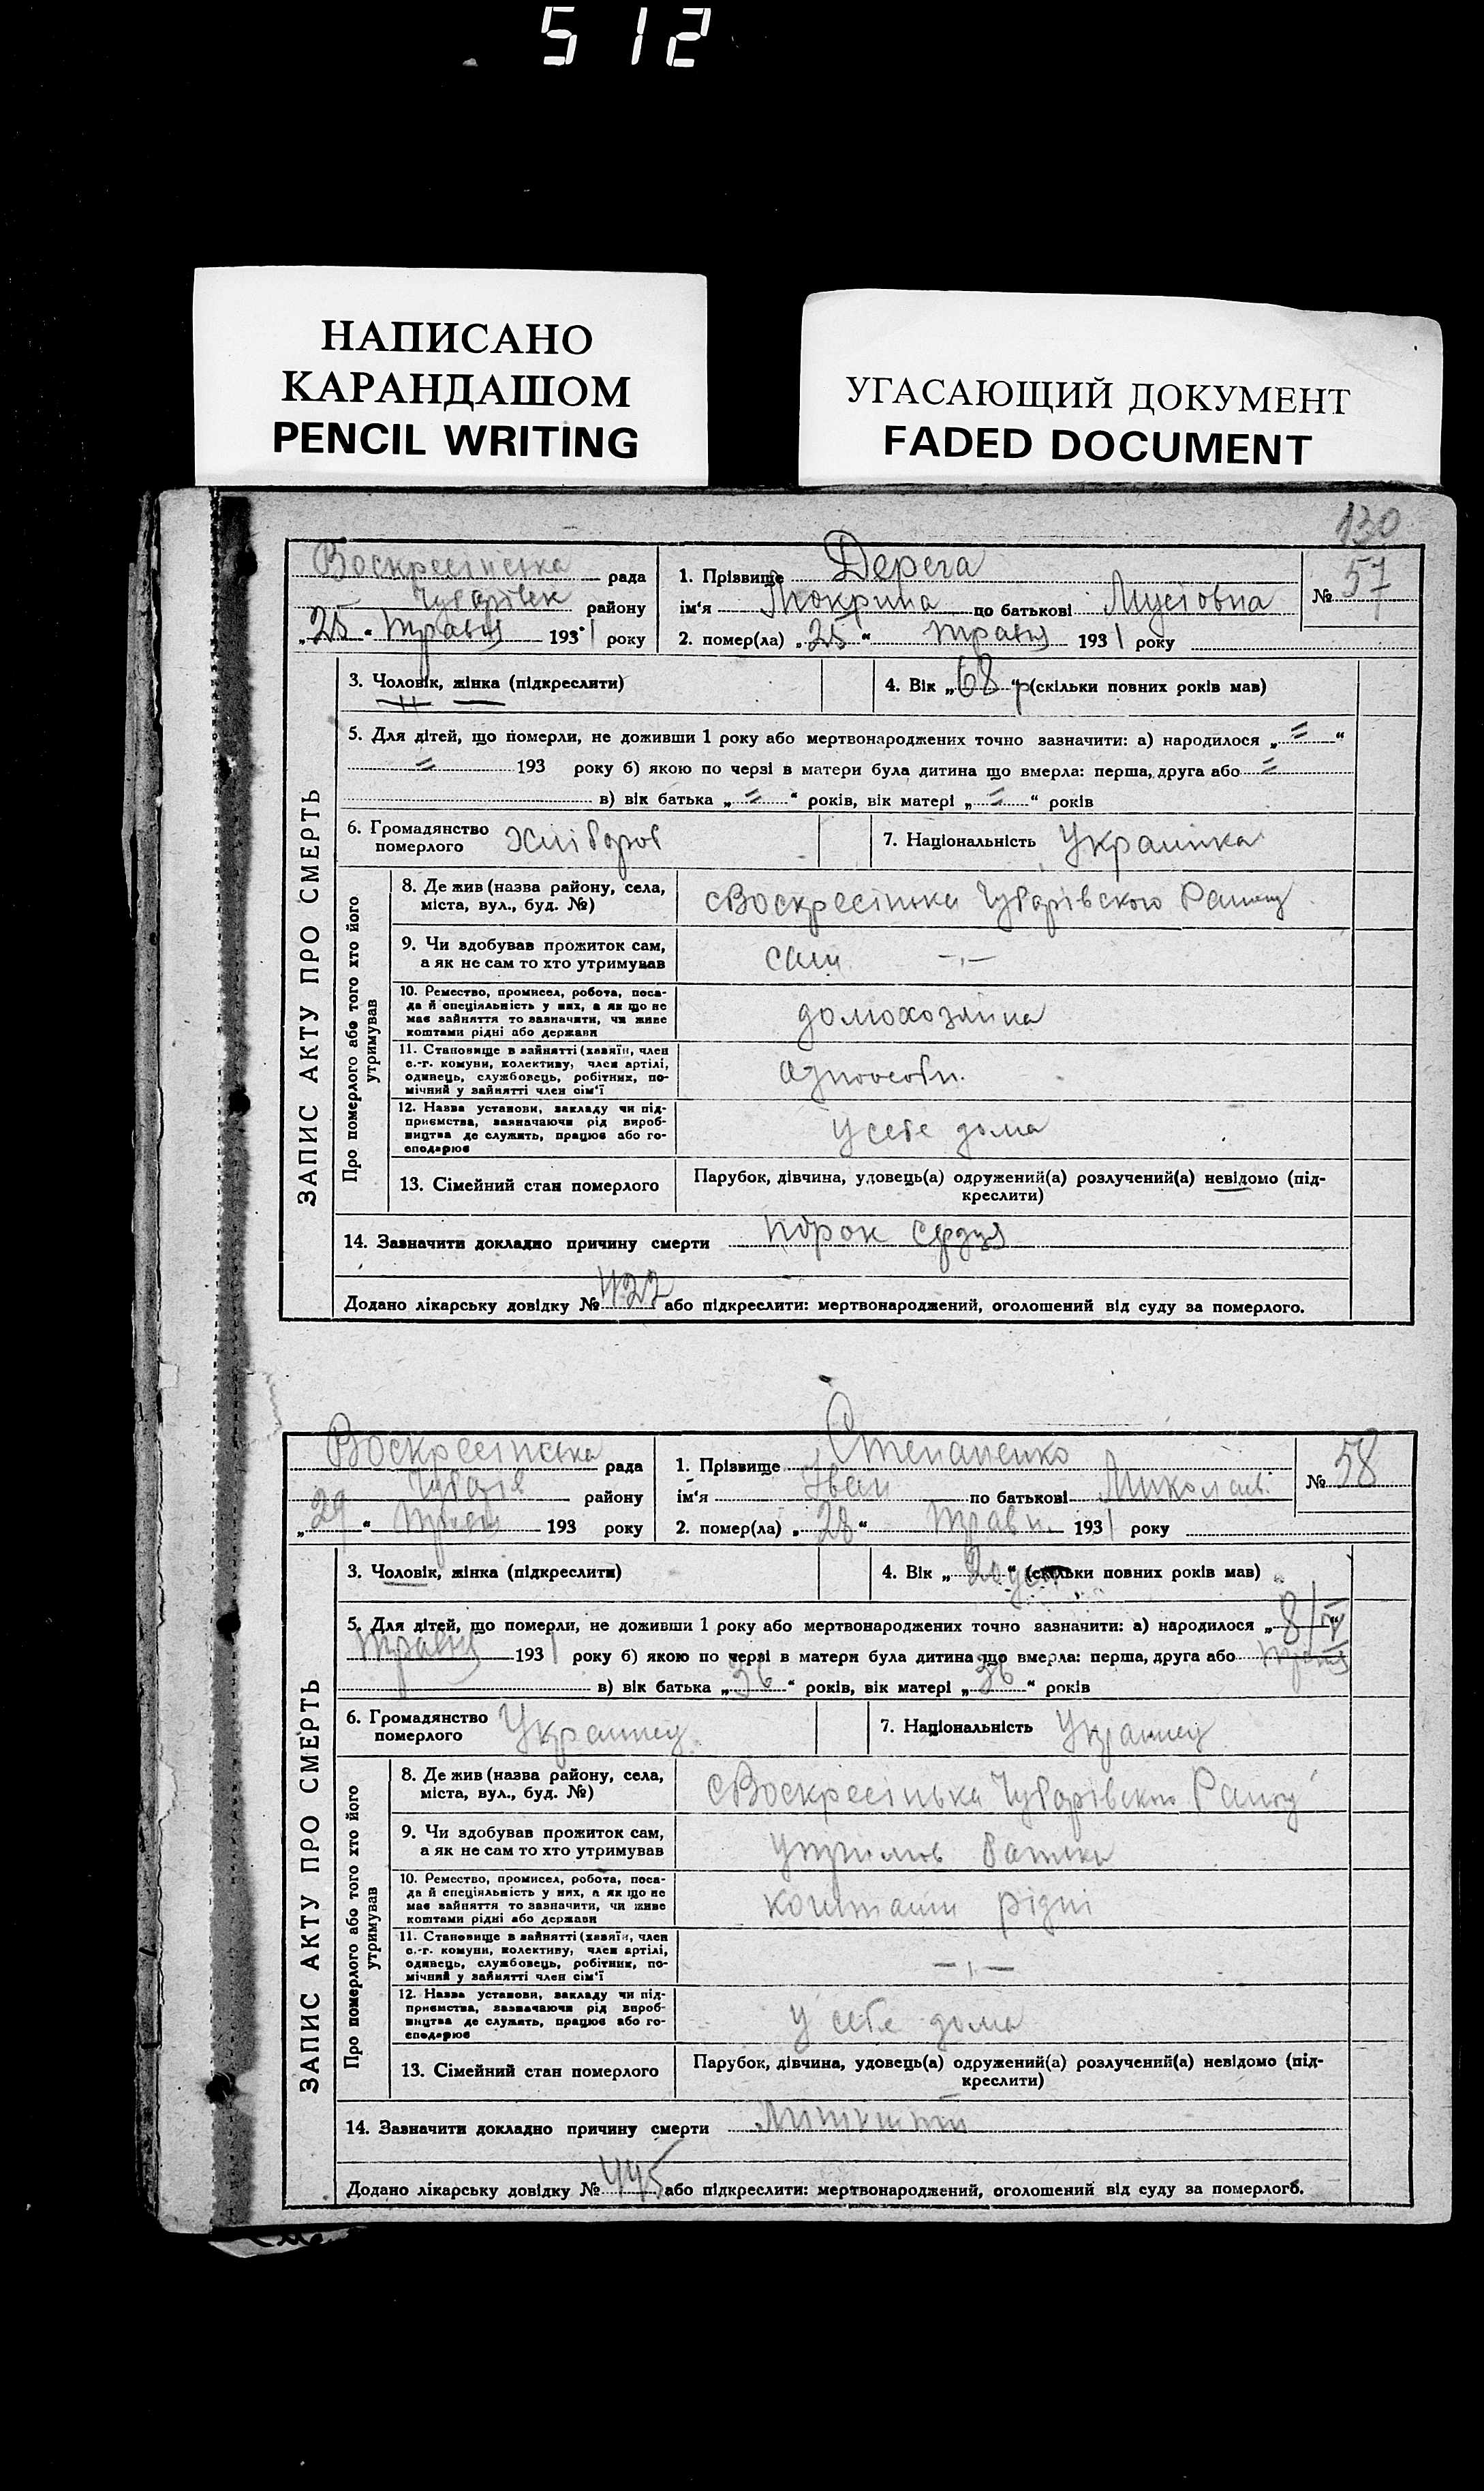 512
НАПИСАНО
КАРАНДАШОМ
PENCIL WRITING
УГАСАЮЩИЙ ДОКУМЕНТ
FADED DOCUMENT
130
ЗАПИС АКТУ ПРО СМЕРТЬ
Воскресінська рада
району
„25“ травня 1931 року
1. Прізвище Дерега
ім'я Мокрина по батькові Мусіовна
2. помер(ла) „25“ травня 1931 року
№ 57
3. Чоловік, жінка (підкреслити)
4. Вік „68“ р (скільки повних років мав)
5. Для дітей, що померли, не доживши 1 року або мертвонароджених точно зазначити: а) народилося „=“
= 193 року б) якою по черзі в матери була дитина що вмерла: перша, друга або =
в) вік батька „=“ років, вік матері „=“ років
6. Громадянство
померлого Хлібороб
7. Національність Украинка
Про померлого або того хто його
утримував
8. Де жив (назва району, села,
міста, вул., буд. №)
с Воскресінка Чубарівского Району
9. Чи здобував прожиток сам,
а як не сам то хто утримував
сам –„–
10. Ремество, промисел, робота, поса-
да й спеціяльність у них, а як що не
має зайняття то зазначити, чи живе
коштами рідні або держави
домохозяйка
11. Становище в зайнятті (хазяїн, член
с.-г. комуни, колективу, член артілі,
одинець, службовець, робітник, по-
мічний у зайнятті член сім'ї
одноособн.
12. Назва установи, закладу чи під-
приємства, зазначаючи рід вироб-
ництва де служить, працює або го-
сподарює
У себе дома
13. Сімейний стан померлого
Парубок, дівчина, удовець(а) одружений(а) розлучений(а) невідомо (під-
креслити)
14. Зазначити докладно причину смерти порок сердця
Додано лікарську довідку № 422 або підкреслити: мертвонароджений, оголошений від суду за померлого.
ЗАПИС АКТУ ПРО СМЕРТЬ
Воскресінська рада
Чубарів району
„29“ травня 193 року
1. Прізвище Степаненко
ім'я Іван по батькові Миколаєв.
2. помер(ла) „28“ травн. 1931 року
№ 58
3. Чоловік, жінка (підкреслити)
4. Вік „20 “ (скільки повних років мав)
5. Для дітей, що померли, не доживши 1 року або мертвонароджених точно зазначити: а) народилося „8/V“
травня 1931 року б) якою по черзі в матери була дитина що вмерла: перша, друга або
в) вік батька „36“ років, вік матері „36“ років
6. Громадянство
померлого Украинец
7. Національність Украинец
Про померлого або того хто його
утримував
8. Де жив (назва району, села,
міста, вул., буд. №)
с Воскресінька Чубарівского Району
9. Чи здобував прожиток сам,
а як не сам то хто утримував
утримов батьки
10. Ремество, промисел, робота, поса-
да й спеціяльність у них, а як що не
має зайняття то зазначити, чи живе
коштами рідні або держави
коштами рідні
11. Становище в зайнятті (хазяїн, член
с.-г. комуни, колективу, член артілі,
одинець, службовець, робітник, по-
мічний у зайнятті член сім'ї
–„–
12. Назва установи, закладу чи під-
приємства, зазначаючи рід вироб-
ництва де служить, працює або го-
сподарює
У себе дома
13. Сімейний стан померлого
Парубок, дівчина, удовець(а) одружений(а) розлучений(а) невідомо (під-
креслити)
14. Зазначити докладно причину смерти
Додано лікарську довідку № 445 або підкреслити: мертвонароджений, оголошений від суду за померлого.